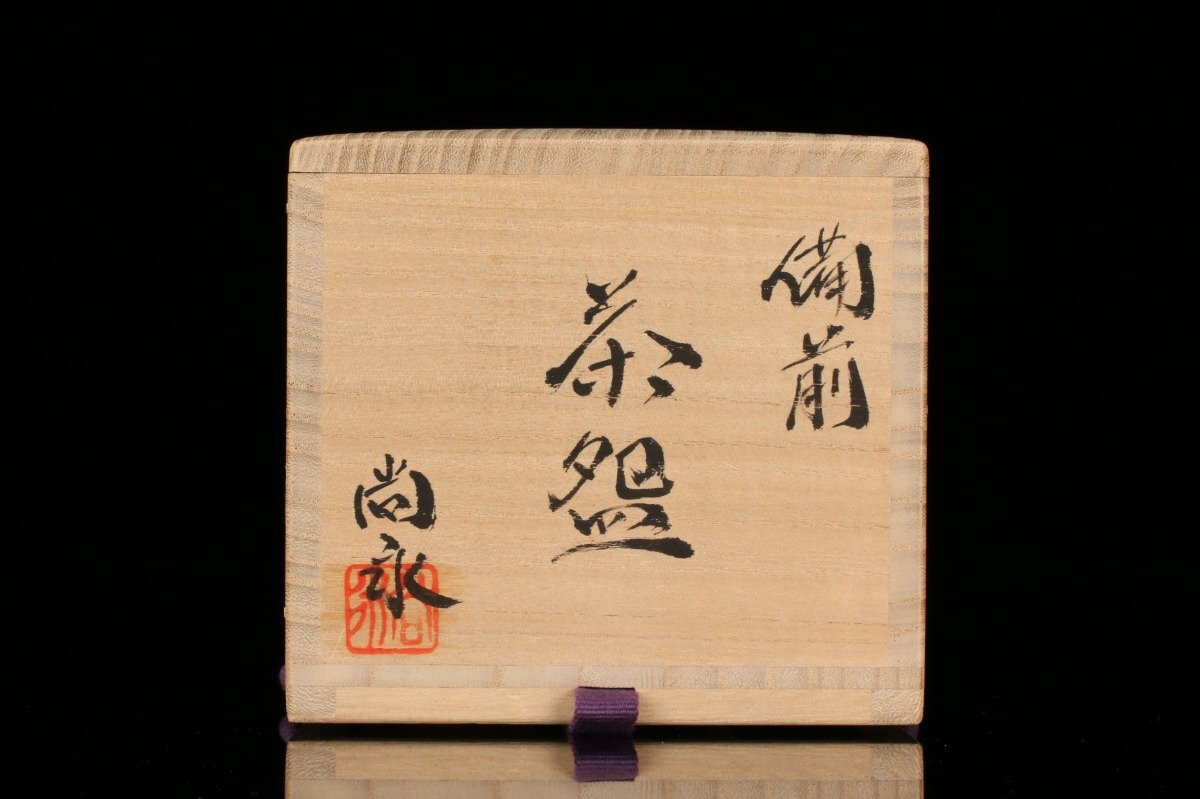 備前
茶盌
尚永